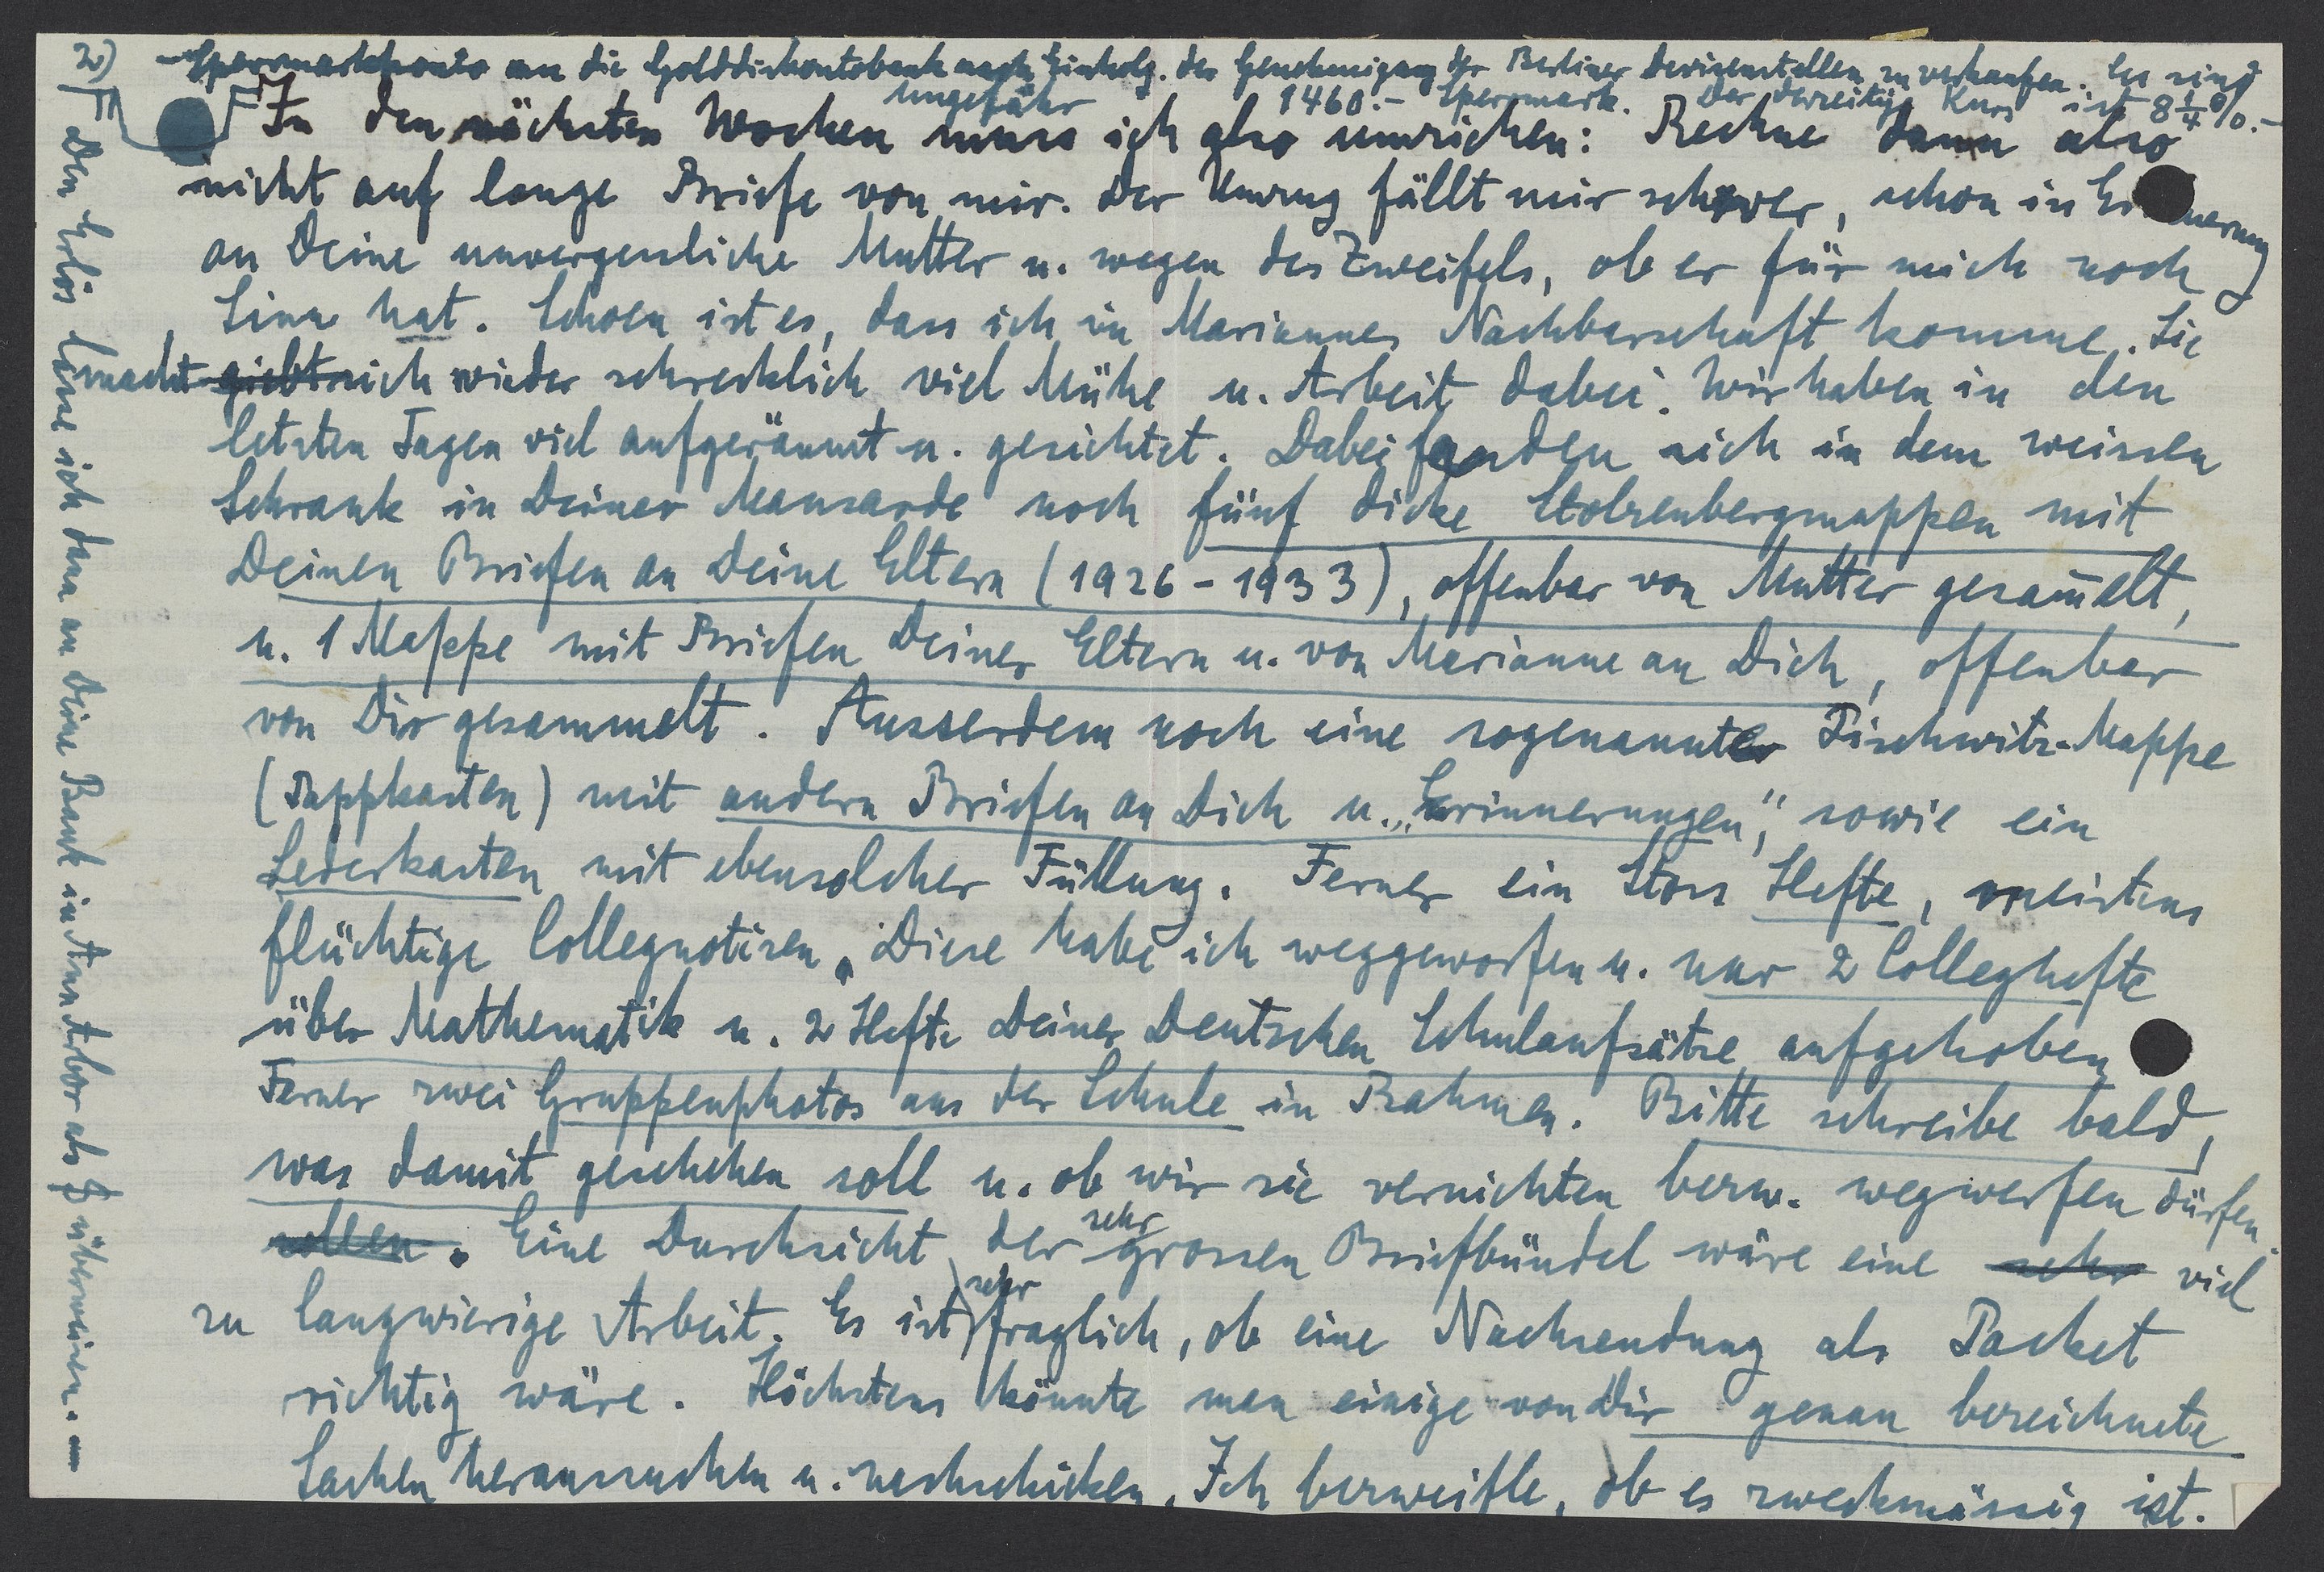 2)
-Sperrmarkkonto an die Golddiskontobank nach Einholg. der Genehmigung der Berliner Devisenstellen zu verkaufen. Es sind
ungefähr 1460.- Sperrmark. Der derzeitige Kurs ist 8¼%.-
In den nächsten Wochen muss ich also umziehen: Rechne dann also
nicht auf lange Briefe von mir. Der Umzug fällt mir schwer, schon in Erinnerung
an Deine unvergessliche Mutter u. wegen des Zweifels, ob er für mich noch
Sinn hat. Schoen ist es, dass ich in Mariannes Nachbarschaft komme. Sie
macht giebt sich wieder schrecklich viel Mühe u. Arbeit dabei. Wir haben in den
letzten Tagen viel aufgeräumt u. gesichtet. Dabei fanden sich in dem weissen
Schrank in Deiner Mansarde noch fünf dicke Stolzenbergmappen mit
Deinen Briefen an Deine Eltern (1926-1933), offenbar von Mutter gesam̄elt,
u. 1 Mappe mit Briefen Deiner Eltern u. von Marianne an Dich, offenbar
von Dir gesammelt. Ausserdem noch eine sogenannte Tischwitz-Mappe
(Pappkasten) mit andern Briefen an Dich u. „Erinnerungen“, sowie ein
Lederkasten mit ebensolcher Füllung. Ferner ein Stoss Hefte, meistens
flüchtige Collegnotizen. Diese habe ich weggeworfen u. nur 2 Colleghefte
über Mathematik u. 2 Hefte Deiner Deutschen Schulaufsätze aufgehoben
Ferner zwei Gruppenphotos aus der Schule in Rahmen. Bitte schreibe bald,
was damit geschehen soll u. ob wir sie vernichten bezw. wegwerfen dürfen.
sollen. Eine Durchsicht der sehr grossen Briefbündel wäre eine sehr viel
zu langwierige Arbeit. Es ist sehr fraglich, ob eine Nachsendung als Packet
richtig wäre. Höchstens könnte man einige von Dir genau bezeichnete
Sachen heraussuchen u. nachschicken. Ich bezweifle, ob es zweckmässig ist.
den Erlös lasse ich dann an Deine Bank in Ann Arbor als $ überweisen.-